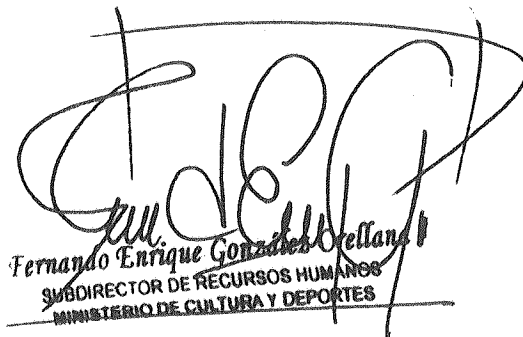 Fernando Enrique González Orellana
SUBDIRECTOR DE RECURSOS HUMANOS
MINISTERIO DE CULTURA Y DEPORTES